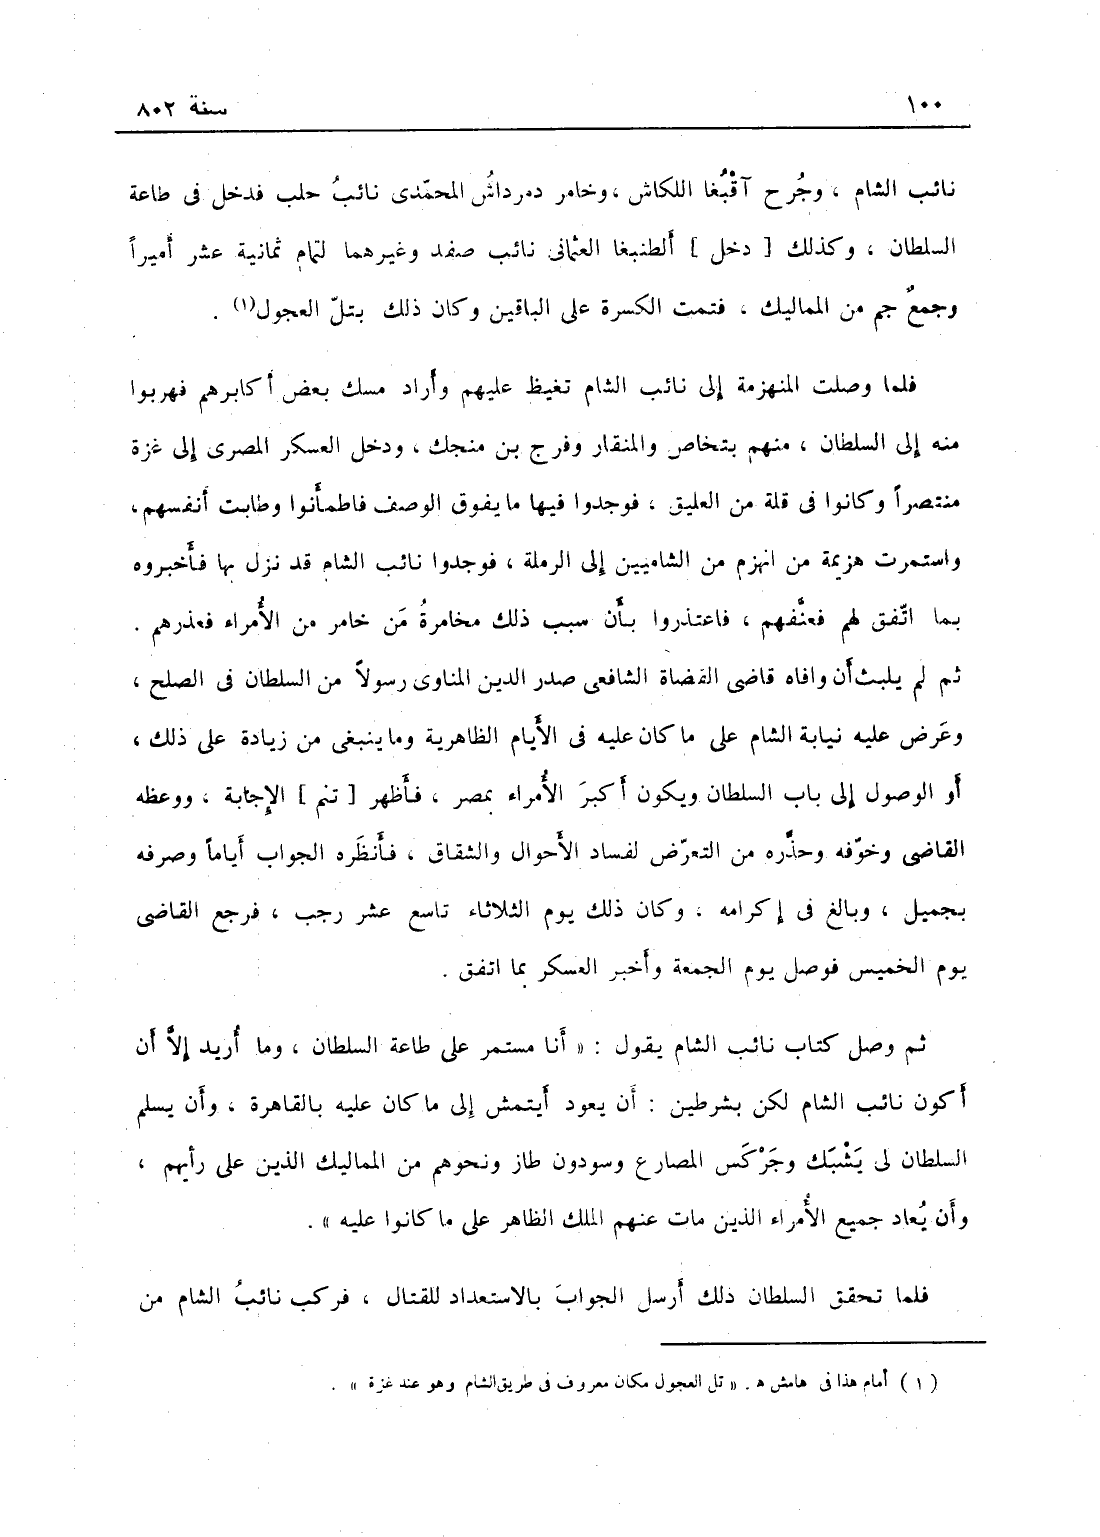 ١٠٠
سنة ٨٠٢
نائب الشام ، وجُرح آقْبُغا اللكاش ، وخامر دمرداشُ المحمّدى نائبُ حلب فدخل فى طاعة
السلطان ، وكذلك [ دخل ] ألطنبغا العثمانى نائب صفد وغيرهما لتمام ثمانية عشر أميراً
وجمعٌ جم من المماليك ، فتمت الكسرة على الباقين وكان ذلك بتلّ العجول(١) .
فلما وصلت المنهزمة إلى نائب الشام تغيظ عليهم وأراد مسك بعض أكابرهم فهربوا
منه إلى السلطان ، منهم بتخاص والمنقار وفرج بن منجك ، ودخل العسكر المصرى إلى غزة
منتصراً وكانوا فى قلة من العليق ، فوجدوا فيها ما يفوق الوصف فاطمأنوا وطابت أنفسهم ،
واستمرت هزيمة من انهزم من الشاميين إلى الرملة ، فوجدوا نائب الشام قد نزل بها فأخبروه
بما اتّفق لهم فعنَّفهم ، فاعتذروا بأن سبب ذلك مخامرةُ مَن خامر من الأُمراء فعذرهم .
ثم لم يلبث أن وافاه قاضى القضاة الشافعى صدر الدين المناوى رسولاً من السلطان فى الصلح ،
وعَرض عليه نيابة الشام على ما كان عليه فى الأيام الظاهرية وما ينبغى من زيادة على ذلك ،
أو الوصول إلى باب السلطان ويكون أكبرَ الأُمراء بمصر ، فأظهر [ تنم ] الإجابة ، ووعظه
القاضى وخوّفه وحذَّره من التعرّض لفساد الأحوال والشقاق ، فأنظَره الجواب أياماً وصرفه
بجميل ، وبالغ فى إكرامه ، وكان ذلك يوم الثلاثاء تاسع عشر رجب ، فرجع القاضى
يوم الخميس فوصل يوم الجمعة وأخبر العسكر بما اتفق .
ثم وصل كتاب نائب الشام يقول : « أنا مستمر على طاعة السلطان ، وما أُريد إلاَّ أن
أكون نائب الشام لكن بشرطين : أن يعود أيتمش إلى ما كان عليه بالقاهرة ، وأن يسلم
السلطان لى يَشْبَك وجَرْكَس المصارع وسودون طاز ونحوهم من المماليك الذين على رأيهم ،
وأن يُعاد جميع الأُمراء الذين مات عنهم الملك الظاهر على ما كانوا عليه » .
فلما تحقق السلطان ذلك أرسل الجوابَ بالاستعداد للقتال ، فركب نائبُ الشام من
( ١ ) أمام هذا فى هامش ه‍ . « تل العجول مكان معروف فى طريق الشام وهو عند غزة » .